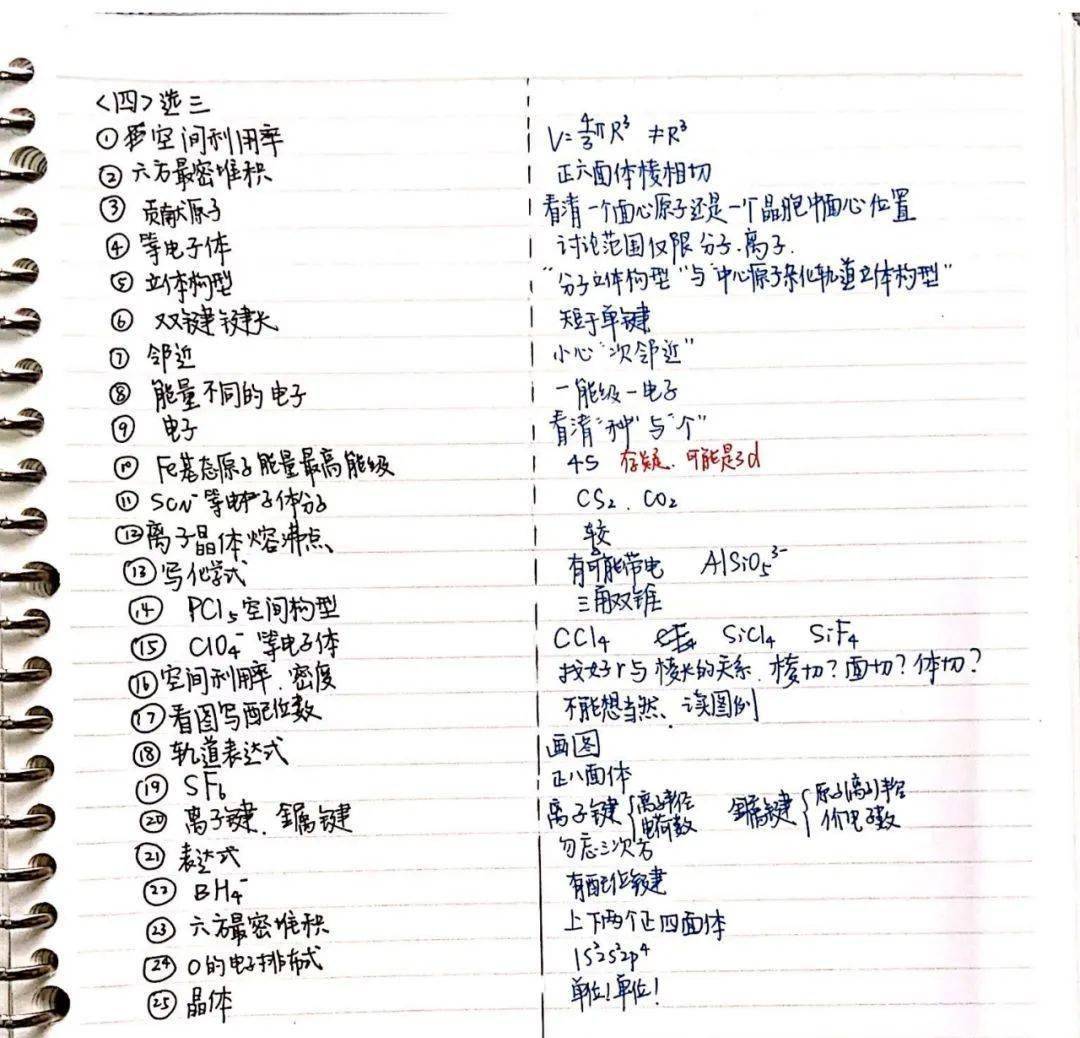 <四>选三
① 空间利用率 V=4/3πR³ ≠R³
② 六方最密堆积 正六面体棱相切
③ 贡献原子 看清一个面心原子还是一个晶胞中面心位置
④ 等电子体 讨论范围仅限分子.离子.
⑤ 立体构型 "分子立体构型"与"中心原子杂化轨道立体构型"
⑥ 双键键长 短于单键
⑦ 邻近 小心"次邻近"
⑧ 能量不同的电子 一能级一电子
⑨ 电子 看清"种"与"个"
⑩ Fe基态原子能量最高能级 4s 存疑.可能是3d
⑪ SCN⁻等电子体分子 CS₂、CO₂
⑫ 离子晶体熔沸点 较
⑬ 写化学式 有可能带电 AlSiO₅³⁻
⑭ PCl₅空间构型 三角双锥
⑮ ClO₄⁻等电子体 CCl₄ SiCl₄ SiF₄
⑯ 空间利用率.密度 找好r与棱长的关系.棱切?面切?体切?
⑰ 看图写配位数 不能想当然、读图例
⑱ 轨道表达式 画图
⑲ SF₆ 正八面体
⑳ 离子键.金属键 离子键{离子半径 电荷数 金属键{原子(离子)半径 价电子数
㉑ 表达式 勿忘三次方
㉒ BH₄⁻ 有配位键
㉓ 六方最密堆积 上下两个正四面体
㉔ O的电子排布式 1s²2s²2p⁴
㉕ 晶体 单位!单位!